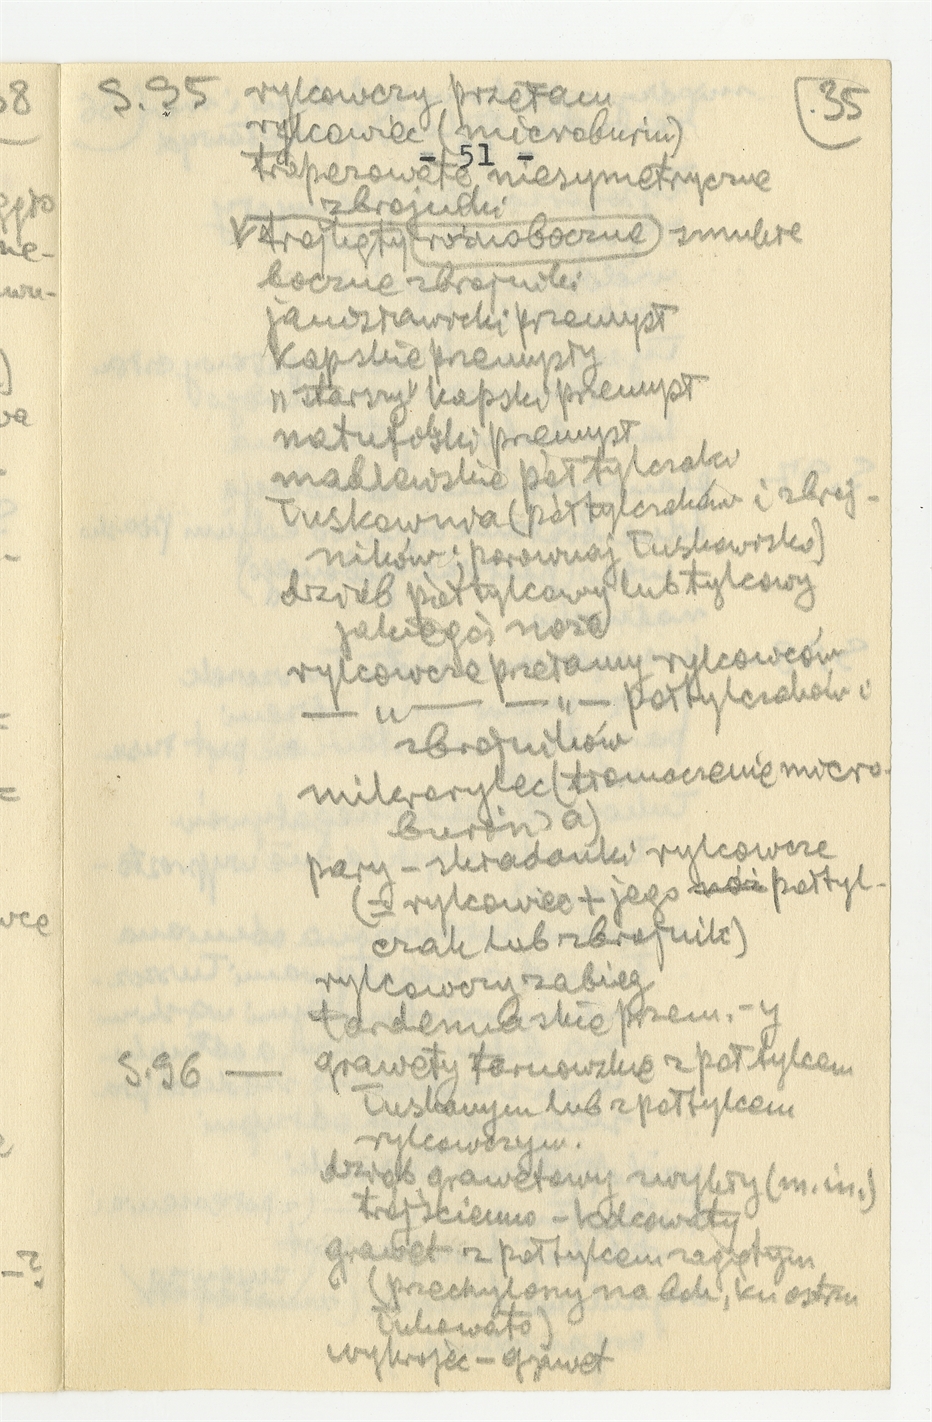 S. 95 rylcowczy przełam 35
rylcowiec (microburin)
- 51 -
trapezowate niesymetryczne
zbrojniki
V trójkąty różnoboczne smukłe
boczne zbrojniki
janisławicki przemysł
kapskie przemysły
"starszy" kapski przemysł
natufski przemysł
półtylczaki
Łuskownia (półtylczaków i zbroj-
ników; porównaj Łuskowisko)
dziób półtylcowy lub tylcowy
jakiegoś noża
rylcowcze przełamy rylcowców
— „ — — „ — półtylczaków i
zbrojników
mikrorylec (tłomaczenie micro-
burin'a)
pary - składanki rylcowcze
(= rylcowiec + jego nóż półtyl-
czak lub zbrojnik)
rylcowczy zabieg
tardenuaskie przem. -y
S. 96 — grawety tarnowskie z półtylcem
Łuskanym lub z półtylcem
rylcowczym.
dziób grawetowy zwykły (m. in.)
trójścienno - kolcowaty
grawet z półtylcem zagiętym
(przechylony na bok, ku ostrzu
Łukowato)
wykrojec - grawet